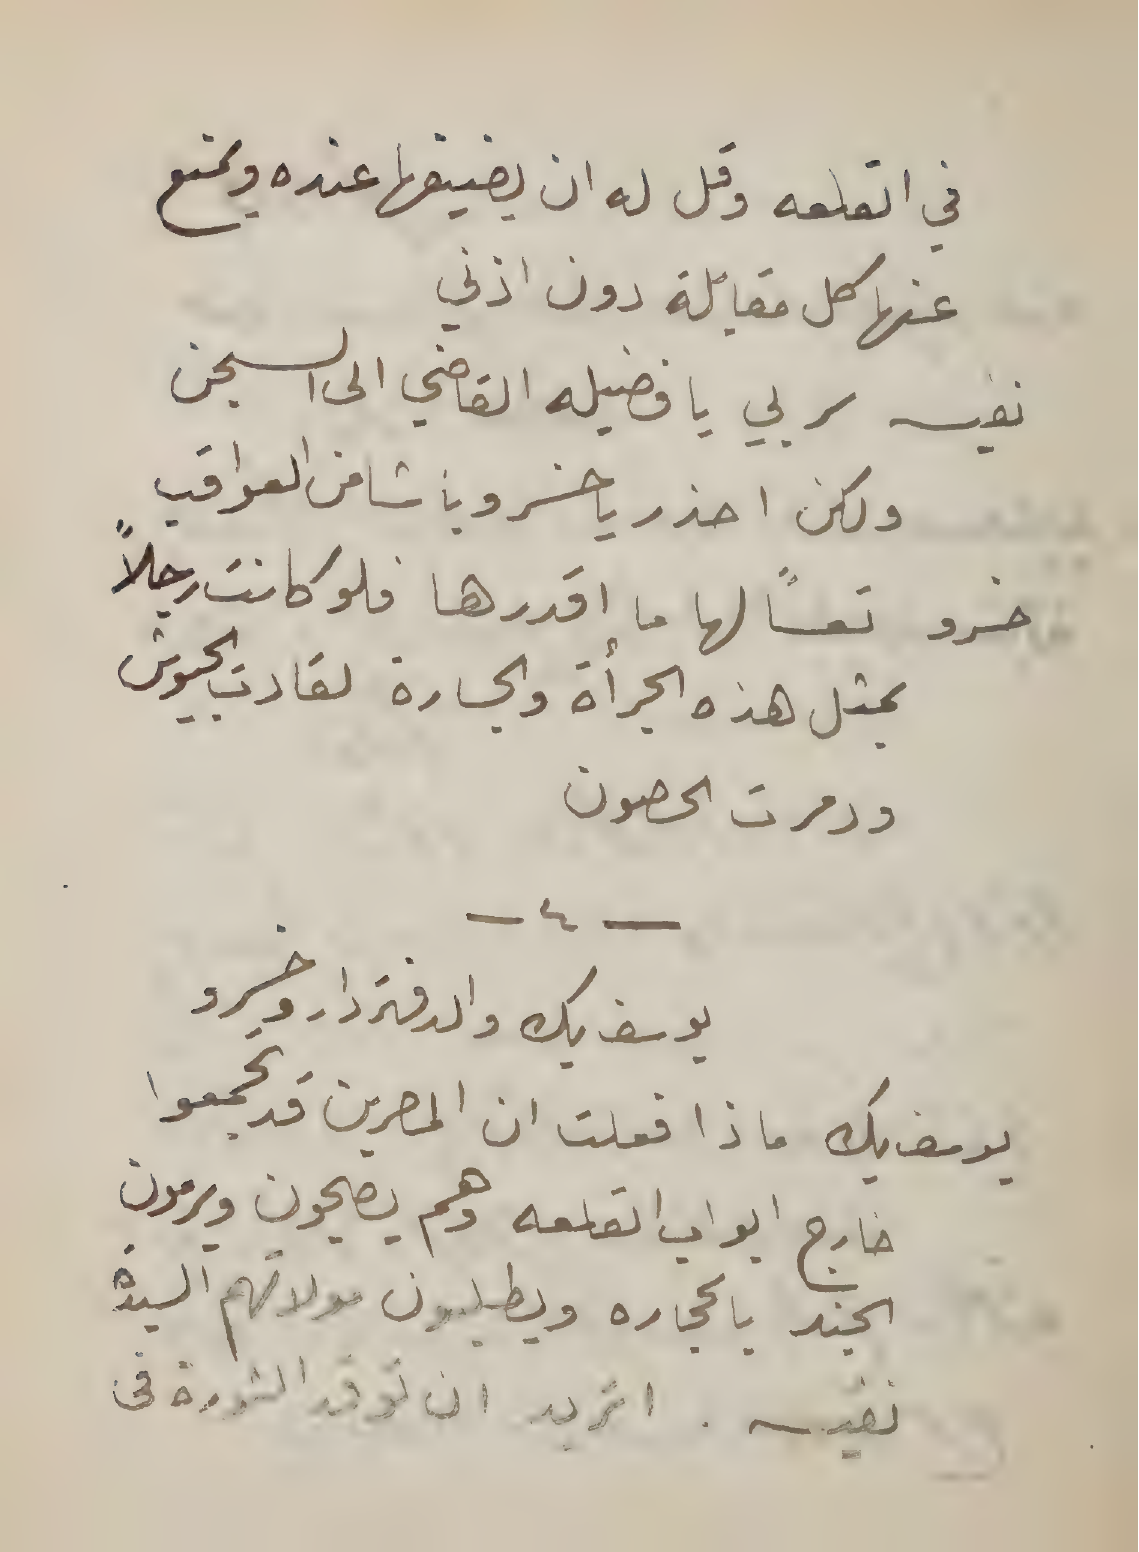 في القلعه وقل له ان يضيفها عنده ويمنع
عنها كل مقابلة دون اذني
نفيسه سر بي يا فضيله القاضي الى السجن
ولكن احذر يا خسرو باشا من العواقب
خسرو تعسًا لها ما اقدرها فلو كانت رجلاً
بمثل هذه الجرأة والجسارة لقادت الجيوش
ودمرت الحصون
— ٤ —
يوسف بك والدفتردار وخسرو
يوسف بك ماذا فعلت ان المصرين قد تجمعوا
خارج ابواب القلعه وهم يصيحون ويرمون
الجند بالحجاره ويطلبون مولاتهم السيدة
نفيسه . اتريد ان توقد الثورة فى